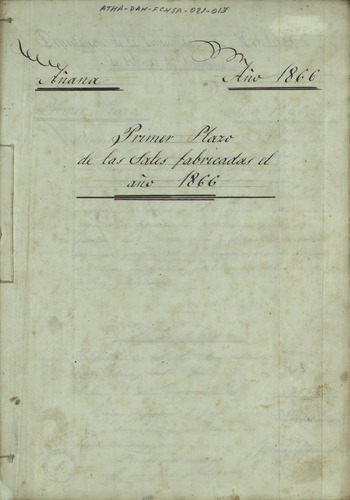 ATHA-DAH-FCNSA-021-013
Añana
Año 1866
Primer Plazo
de las Sales fabricadas el
año 1866